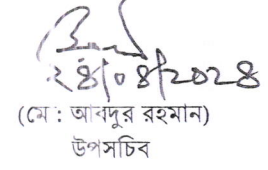 ২৪/০৪/২০২৪
(মে : আবদুর রহমান)
উপসচিব